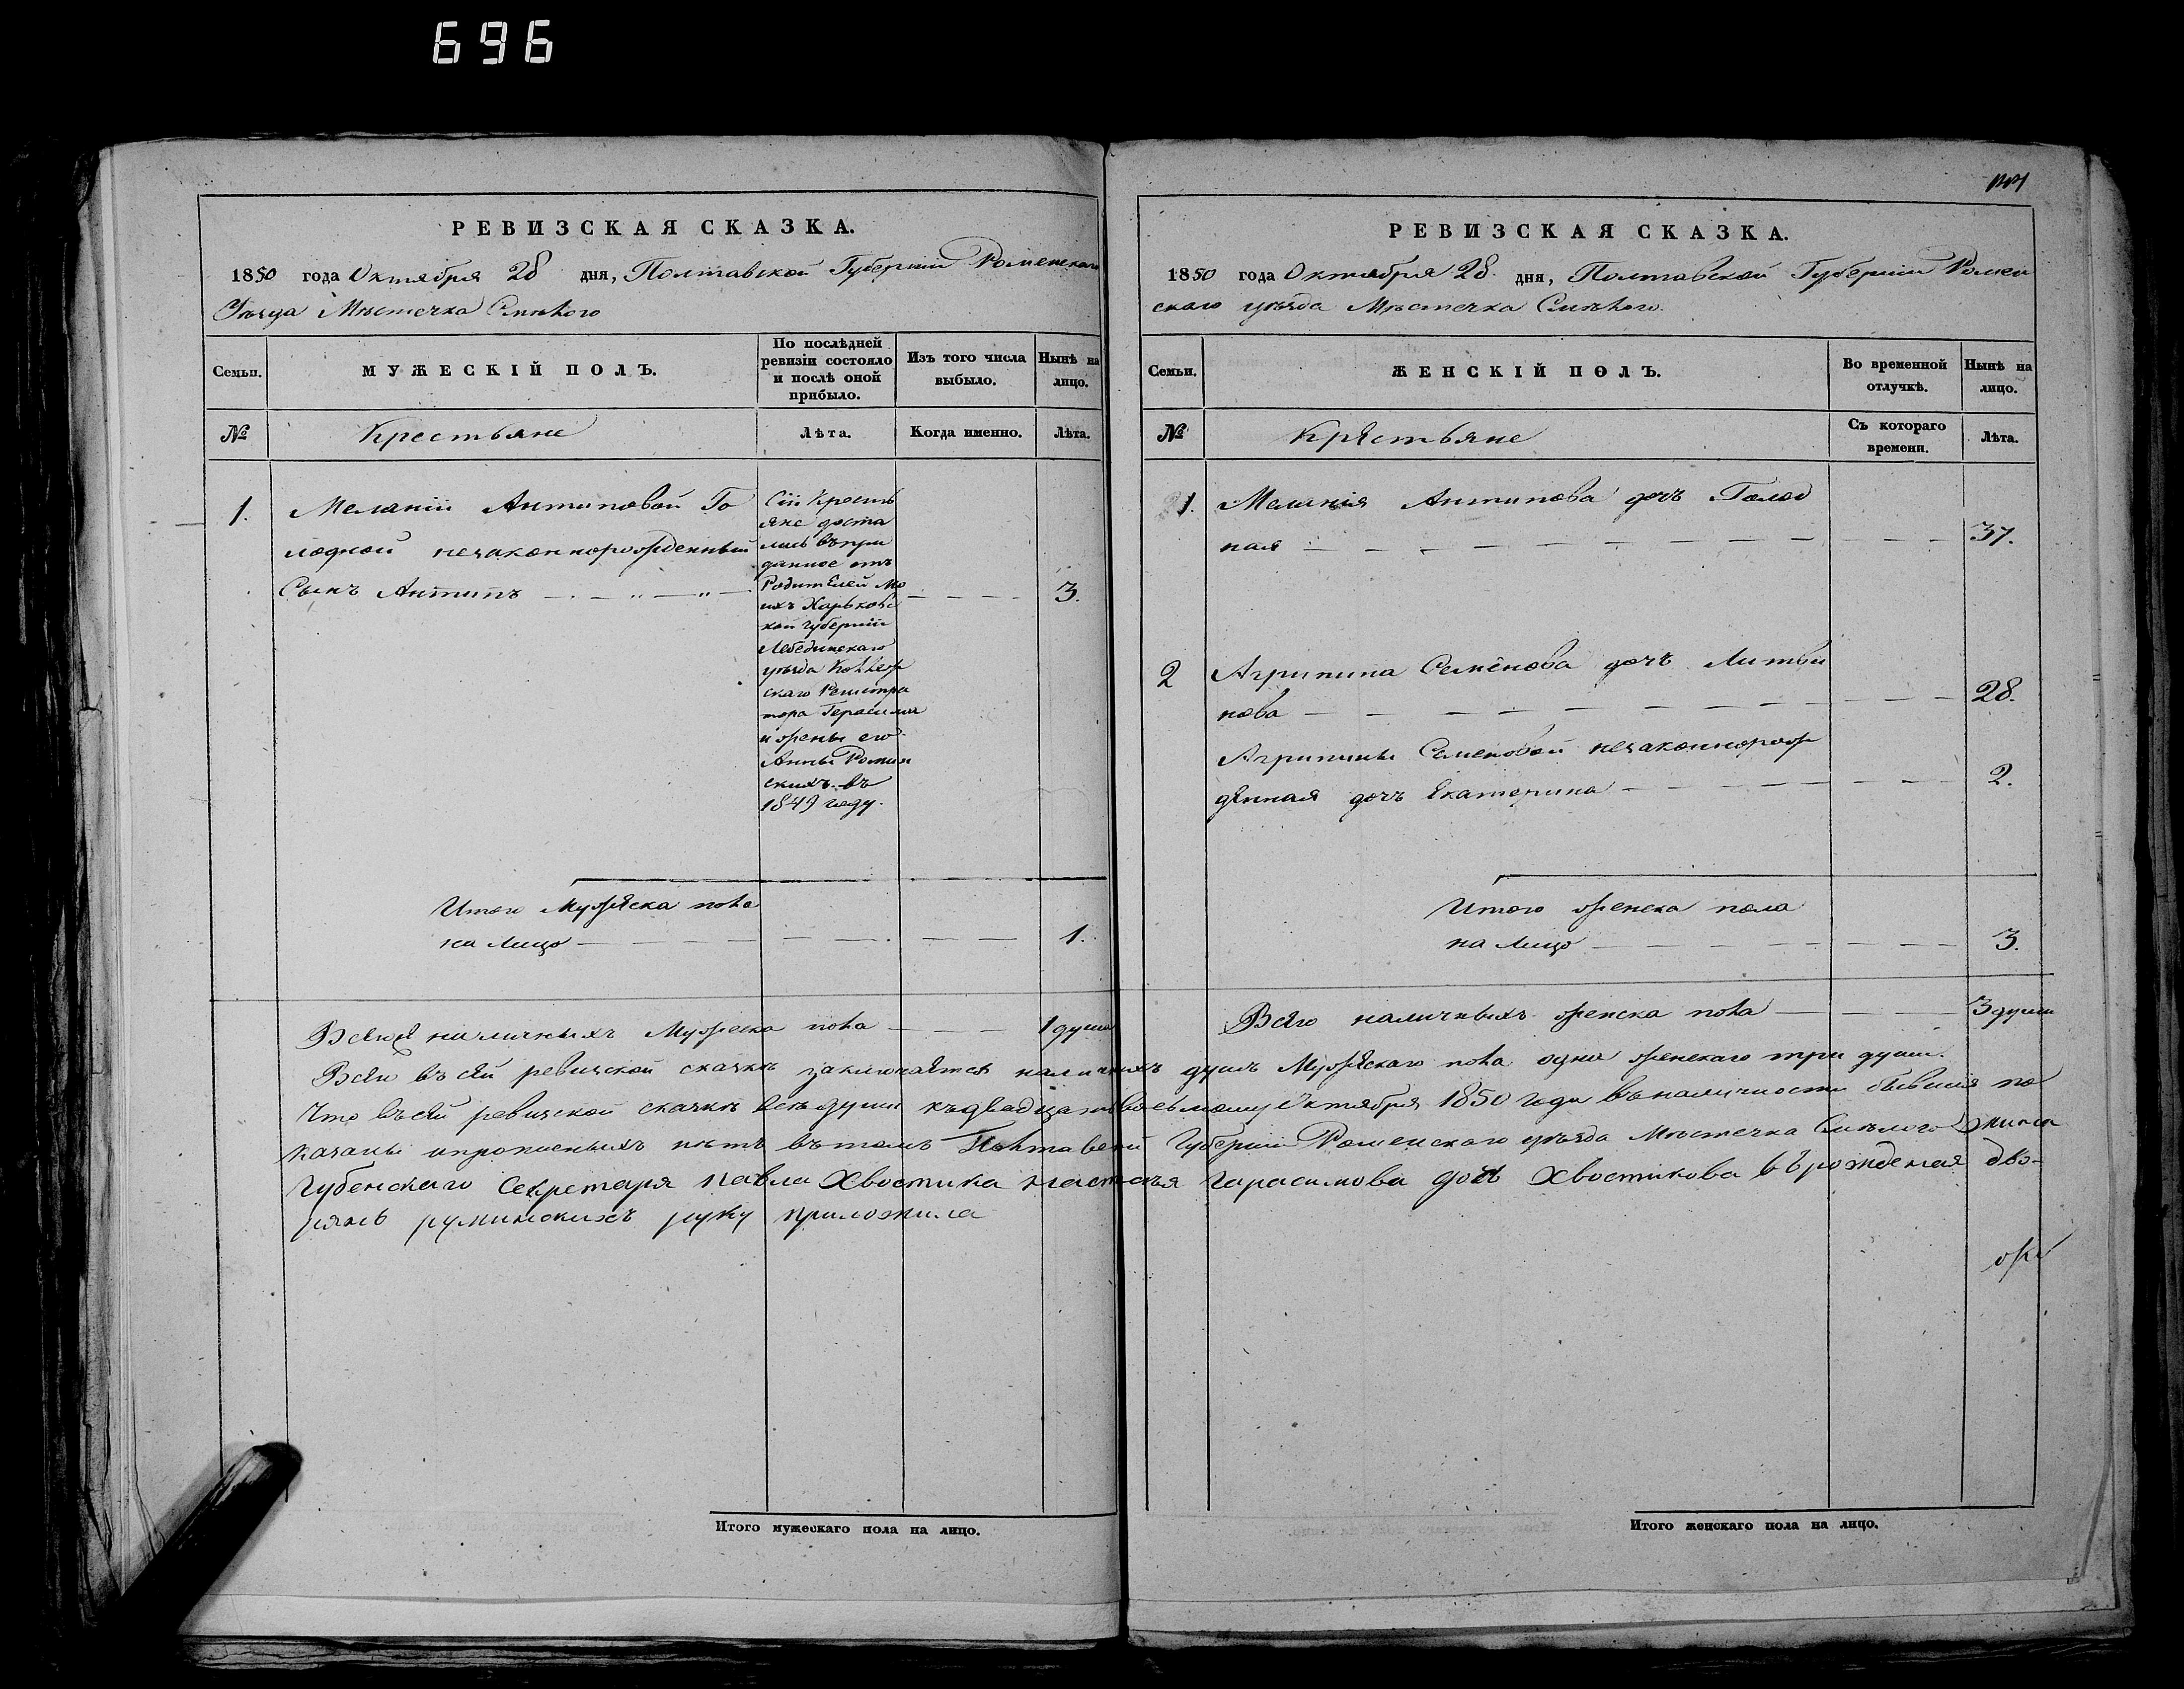 696
РЕВИЗСКАЯ СКАЗКА.
1850 года Октября 28 дня, Полтавской Губернии Роменскаго
Уѣзда Мѣстечка Смѣлого
Семьи.
МУЖЕСКІЙ ПОЛЪ.
По послѣдней ревизіи состояло и послѣ оной прибыло.
Изъ того числа выбыло.
Нынѣ на лицо.
№
Крестьяне
Лѣта.
Когда именно.
Лѣта.
1. Меланіи Антиповой Го
лодной незаконнорожденный
Сынъ Антипъ 3.
Сіи Кресть
яне доста
лись въ при
данное отъ
Родителей мо
ихъ Харьковс
кой губерніи
Лебединскаго
уѣзда Коллеж
скаго Регистра
тора Герасима
и жены его
Анны Роман
скихъ въ
1849 году.
Итого Мужеска пола
на лицо 1.
Всего наличныхъ Мужеска пола 1 душа
РЕВИЗСКАЯ СКАЗКА.
1850 года Октября 28 дня, Полтавской Губерніи Ромен
скаго уѣзда Мѣстечка Смѣлого.
Семьи.
ЖЕНСКІЙ ПОЛЪ.
Во временной отлучкѣ.
Нынѣ на лицо.
№
Крестьяне
Съ котораго времени.
Лѣта.
1. Меланія Антипова дочь Голод
ная 37.
2 Агрипина Семенова дочь Литви
нова 28.
Агрипины Семеновой незаконнорож
денная дочь Екатерина 2.
Итого женска пола
на лицо 3.
Всего наличныхъ женска пола 3 души
Всего въ сей ревизской сказкѣ заключается наличныхъ душъ Мужескаго пола одна женскаго три души.
Что въ сей ревизской сказкѣ всѣ души къ двадцать восьмому Октября 1850 года въ наличности бывшія по
казаны и прописныхъ нѣтъ въ томъ Полтавской Губерніи Роменскаго уѣзда Мѣстечка Смѣлого жина
Губенскаго Секретаря Павла Хвостика Настасья Гарасимова дочь Хвостикова въ рожденая дво-
рянъ руминскихъ руку приложила
Итого мужескаго пола на лицо.
Итого женскаго пола на лицо.